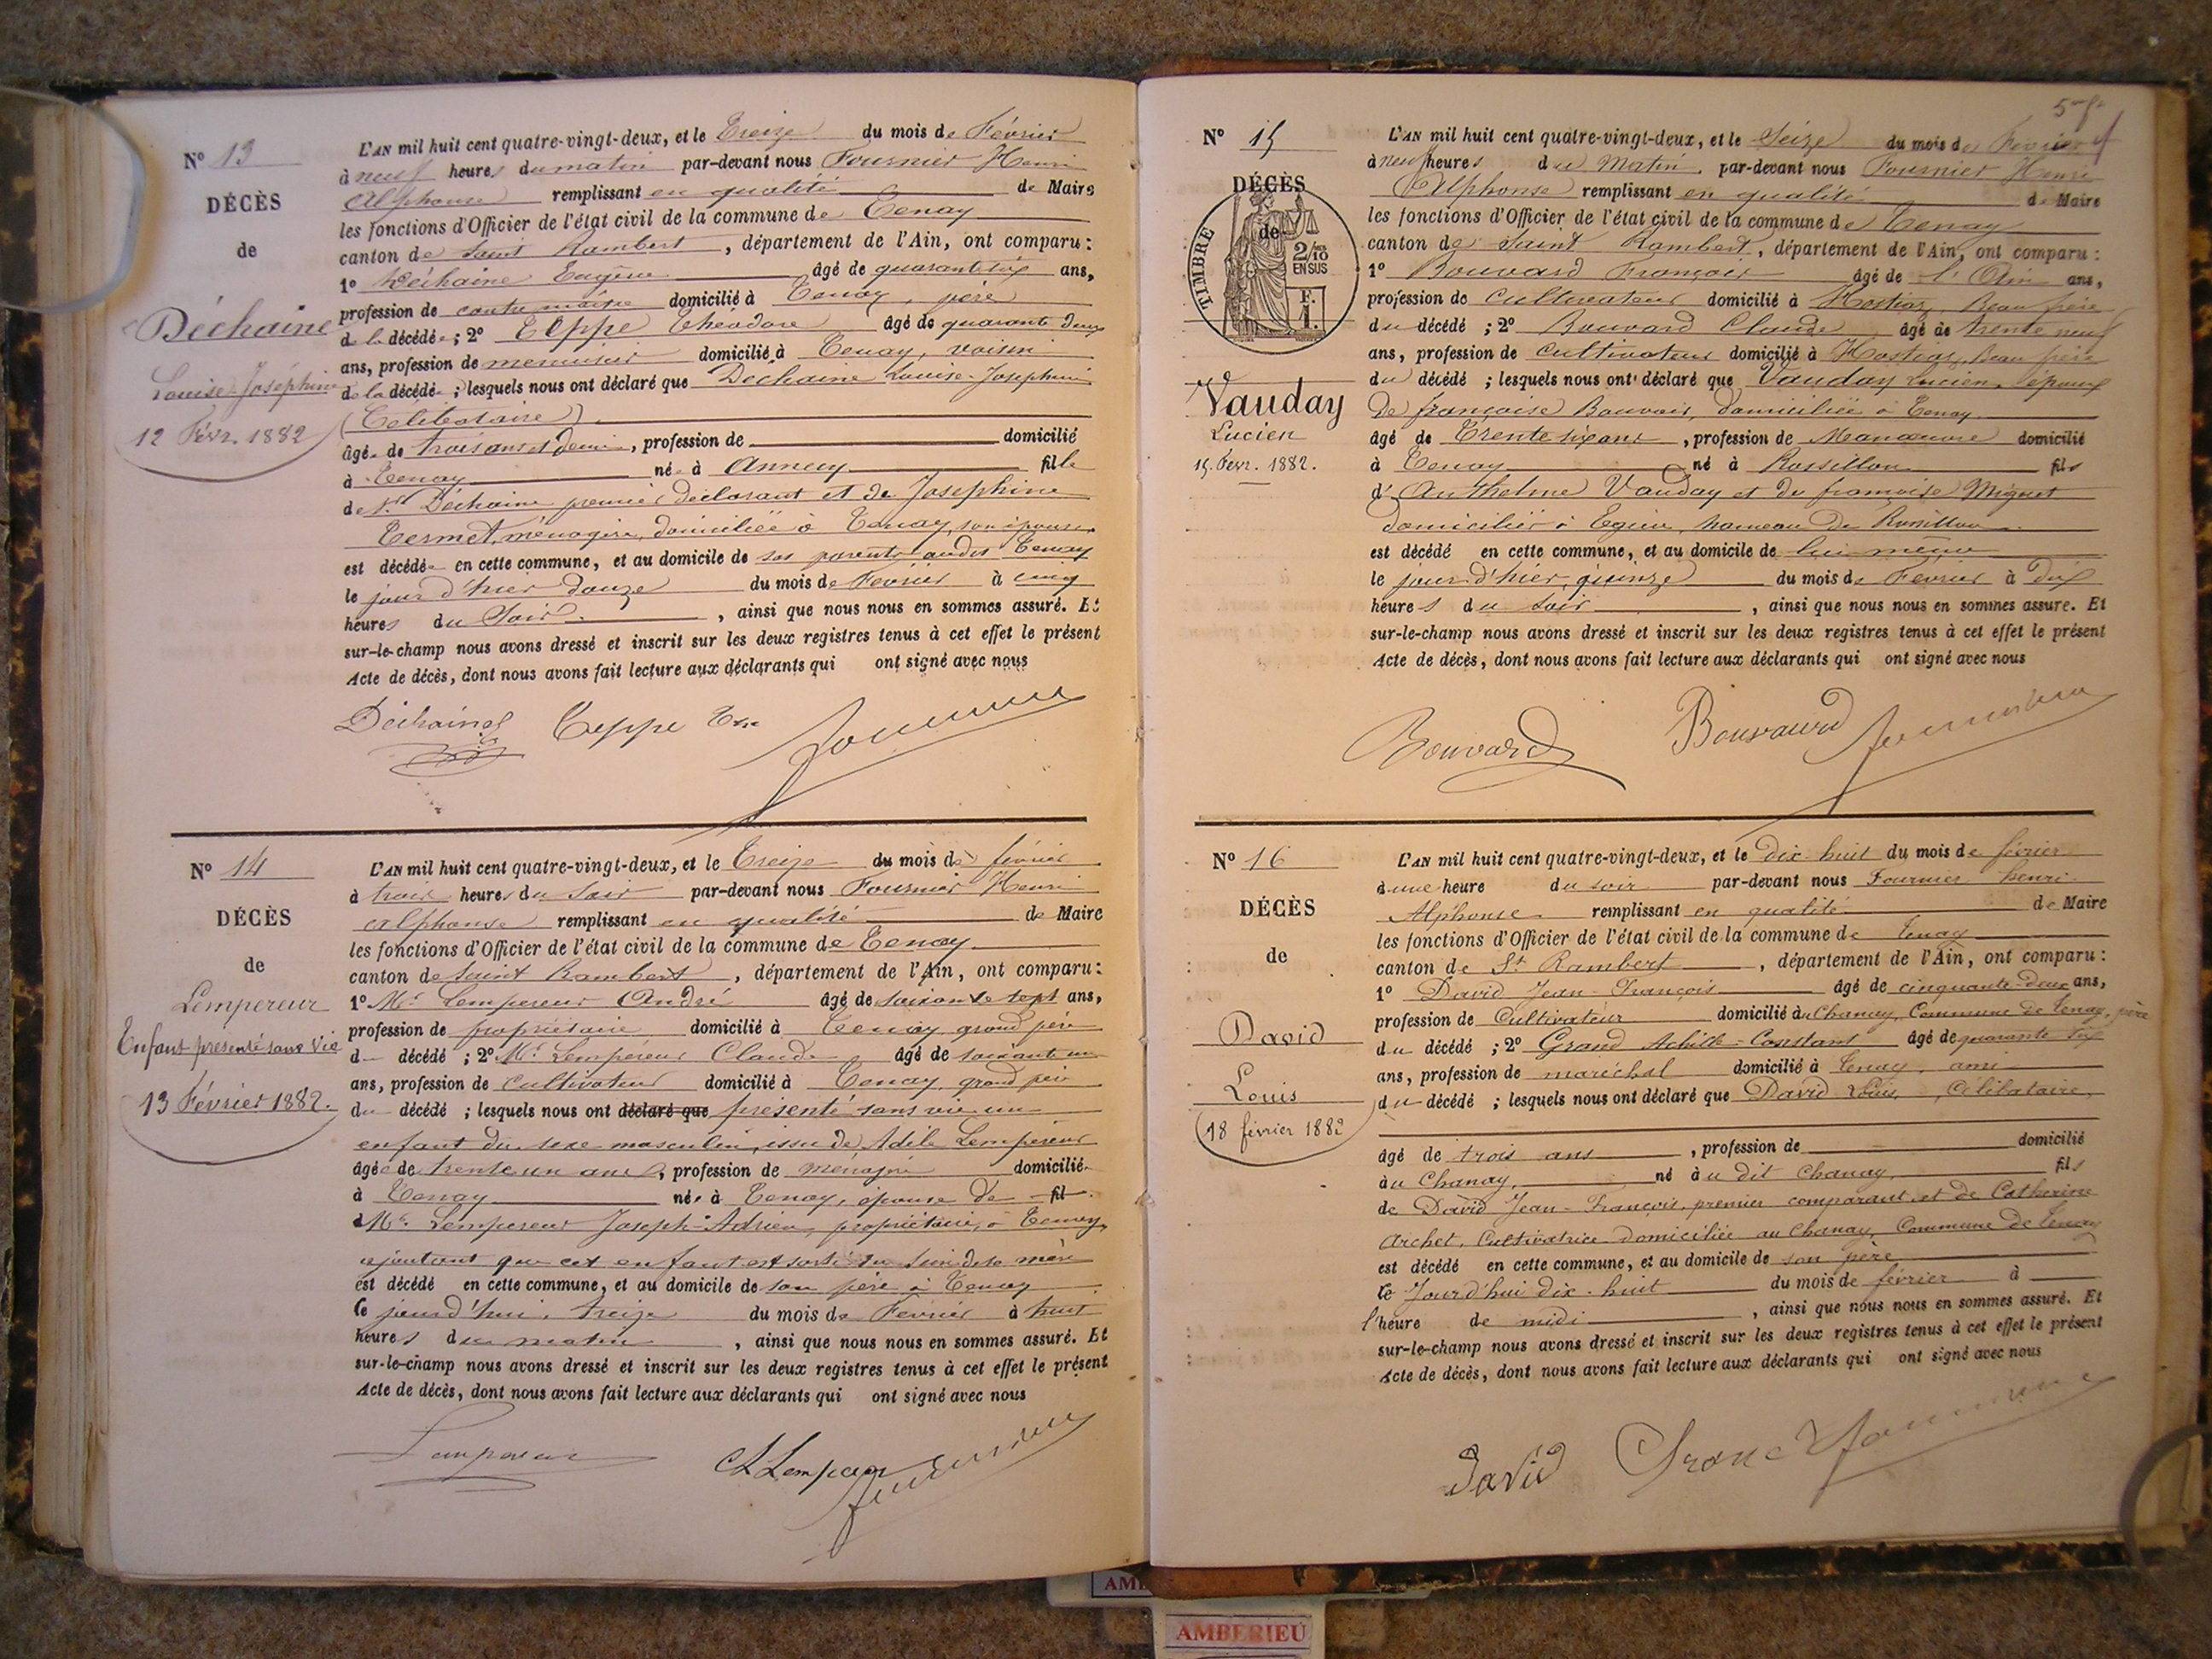 Nº 13
DÉCÈS
de
Déchaine
Louise Joséphine
12 Févr. 1882
L'AN mil huit cent quatre-vingt-deux, et le Treize du mois de Février
à neuf heures du matin par-devant nous Fournier Henri
Alphonse remplissant en qualité de Maire
les fonctions d'Officier de l'état civil de la commune de Tenay
canton de Saint Rambert, département de l'Ain, ont comparu :
1º Déchaine Eugène âgé de quarante six ans,
profession de contre maître domicilié à Tenay, père
de la décédée ; 2º Teppe Théodore âgé de quarante deux
ans, profession de menuisier domicilié à Tenay, voisin
de la décédée ; lesquels nous ont déclaré que Dechaine Louise-Josephine
(Celibataire)
âgée de trois ans et demi, profession de domicilié
à Tenay née à Annecy fille
de Sr Déchaine premier declarant et de Josephine
Termet, ménagère, domiciliée à Tenay, son épouse,
est décédée en cette commune, et au domicile de ses parents audit Tenay
le jour d'hier douze du mois de Février à cinq
heures du Soir, ainsi que nous nous en sommes assuré. Et
sur-le-champ nous avons dressé et inscrit sur les deux registres tenus à cet effet le présent
Acte de décès, dont nous avons fait lecture aux déclarants qui ont signé avec nous
Déchaine Teppe
Nº 14
DÉCÈS
de
Lempereur
Enfant presenté sans vie
13 Février 1882.
L'AN mil huit cent quatre-vingt-deux, et le Treize du mois de février
à trois heures du Soir par-devant nous Fournier Henri
Alphonse remplissant en qualité de Maire
les fonctions d'Officier de l'état civil de la commune de Tenay
canton de Saint Rambert, département de l'Ain, ont comparu :
1º Mr Lempereur André âgé de soixante sept ans,
profession de propriétaire domicilié à Tenay grand père
du décédé ; 2º Mr Lempereur Claude âgé de soixante un
ans, profession de cultivateur domicilié à Tenay, grand père
du décédé ; lesquels nous ont déclaré que présenté sans vie un
enfant du sexe masculin, issu de Adèle Lempereur
âgée de trente un ans, profession de menagère domiciliée
à Tenay née à Tenay, épouse de fil
Mr. Lempereur Joseph-Adrien, propriétaire, à Tenay,
ajoutant que cet enfant est sorti du sein de sa mère
est décédé en cette commune, et au domicile de son père à Tenay
le jourd'hui, treize du mois de Février à huit
heures du matin, ainsi que nous nous en sommes assuré. Et
sur-le-champ nous avons dressé et inscrit sur les deux registres tenus à cet effet le présent
Acte de décès, dont nous avons fait lecture aux déclarants qui ont signé avec nous
Lempereur
Nº 15
DÉCÈS
de
TIMBRE
2/10
EN SUS
F.
1.
Vauday
Lucien
15. Févr. 1882.
L'AN mil huit cent quatre-vingt-deux, et le Seize du mois de Fevrier
à neuf heures du Matin par-devant nous Fournier Henri
Alphonse remplissant en qualité de Maire
les fonctions d'Officier de l'état civil de la commune de Tenay
canton de Saint Rambert, département de l'Ain, ont comparu :
1º Bouvard François âgé de ans,
profession de Cultivateur domicilié à Hostiaz, Beau frère
du décédé ; 2º Bouvard Claude âgé de trente neuf
ans, profession de Cultivateur domicilié à Hostiaz, Beau frère
du décédé ; lesquels nous ont déclaré que Vauday Lucien, époux
De françoise Bouvard, domiciliée à Tenay
âgé de Trente six ans, profession de Manœuvre domicilié
à Tenay né à Rossillon fils
d'Anthelme Vauday et de françoise Miguet
domiciliés à hameau de
est décédé en cette commune, et au domicile de lui même
le jour d'hier, quinze du mois de Fevrier à Dix
heures du Soir, ainsi que nous nous en sommes assuré. Et
sur-le-champ nous avons dressé et inscrit sur les deux registres tenus à cet effet le présent
Acte de décès, dont nous avons fait lecture aux déclarants qui ont signé avec nous
Bouvard Bouvard
Nº 16
DÉCÈS
de
David
Louis
(18 février 1882
L'AN mil huit cent quatre-vingt-deux, et le dix-huit du mois de février
à une heure du soir par-devant nous Fournier henri
Alphonse remplissant en qualité de Maire
les fonctions d'Officier de l'état civil de la commune de Tenay
canton de St Rambert, département de l'Ain, ont comparu :
1º David Jean-François âgé de cinquante-deux ans,
profession de Cultivateur domicilié au Chanay, Commune de Tenay, père
du décédé ; 2º Grand Achille-Constant âgé de quarante six
ans, profession de maréchal domicilié à Tenay, ami
du décédé ; lesquels nous ont déclaré que David Louis, Célibataire,
âgé de trois ans, profession de domicilié
au Chanay, né au dit Chanay, fils
de David Jean-François, premier comparant et de Catherine
Archet, Cultivatrice domiciliée au Chanay, Commune de Tenay
est décédé en cette commune, et au domicile de son père
le Jourd'hui dix-huit du mois de février à
l'heure de midi, ainsi que nous nous en sommes assuré. Et
sur-le-champ nous avons dressé et inscrit sur les deux registres tenus à cet effet le présent
Acte de décès, dont nous avons fait lecture aux déclarants qui ont signé avec nous
David
AMBERIEU